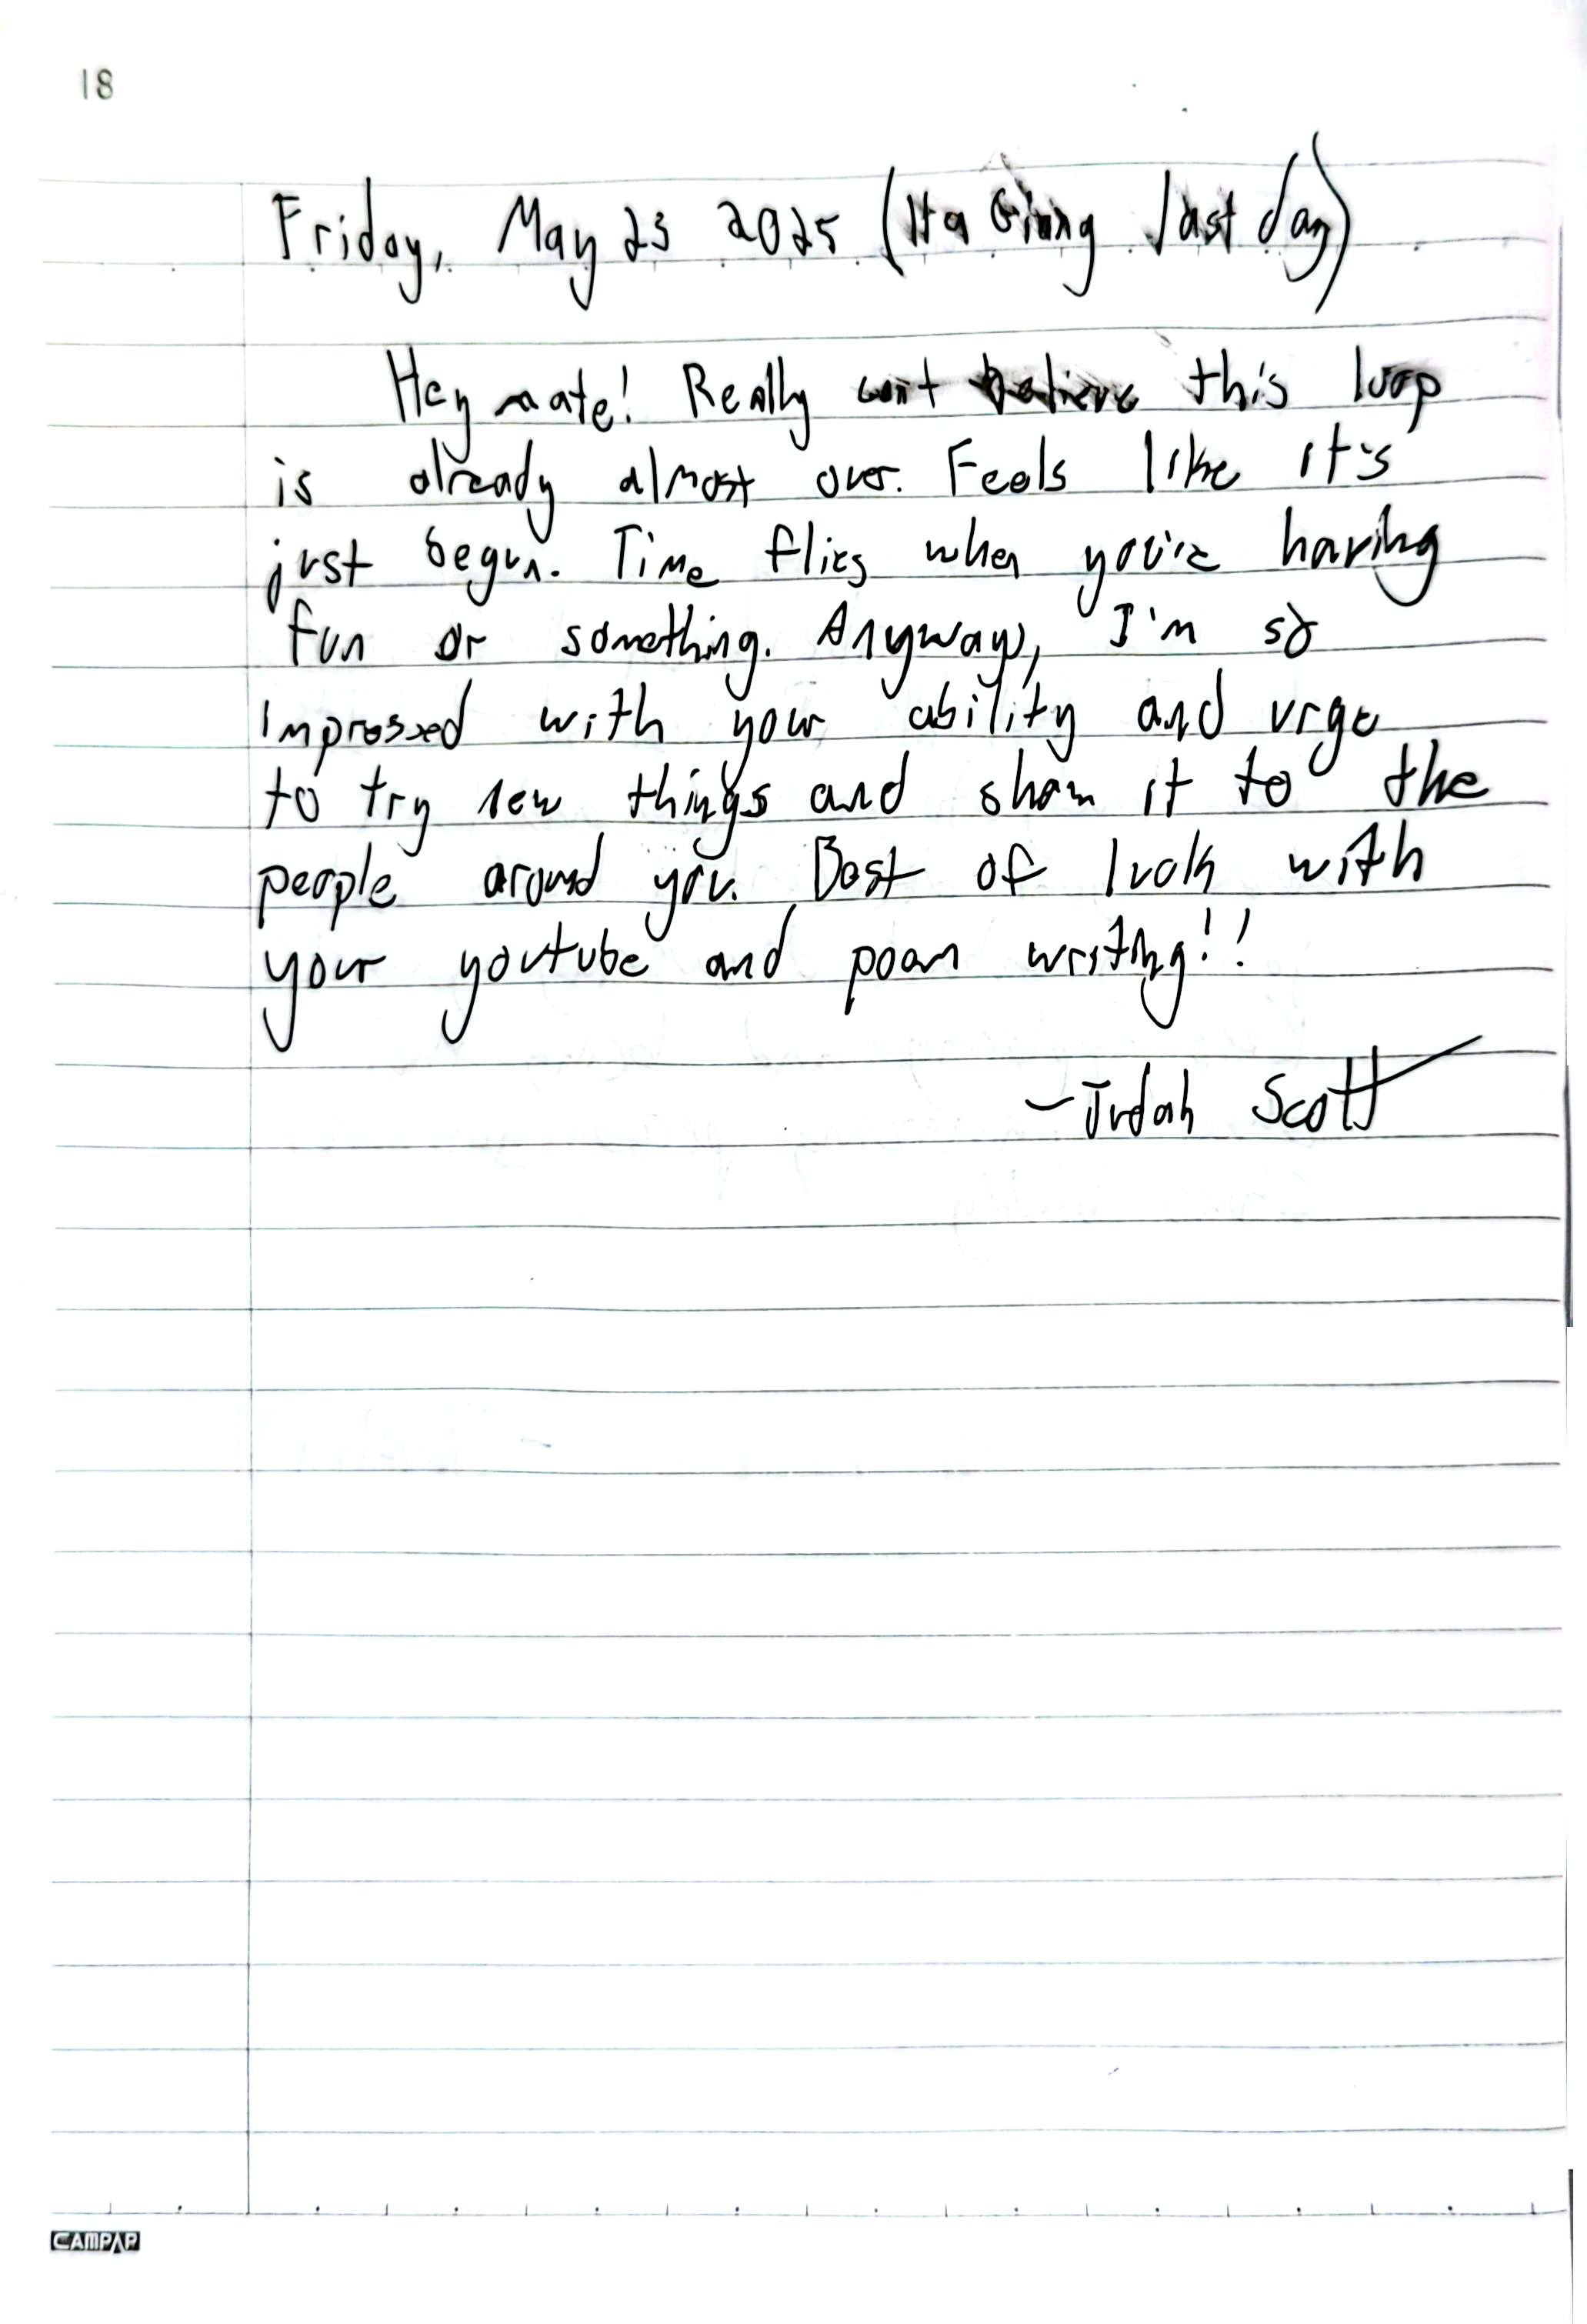 18
Friday, May 23 2025 (Ha Giang last day)
Hey mate! Really can't believe this loop
is already almost over. Feels like it's
just begun. Time flies when you're having
fun or something. Anyways, I'm so
impressed with your ability and urge
to try new things and share it to the
people around you. Best of luck with
your youtube and poem writing!!
-Judah Scott
CAMPAP